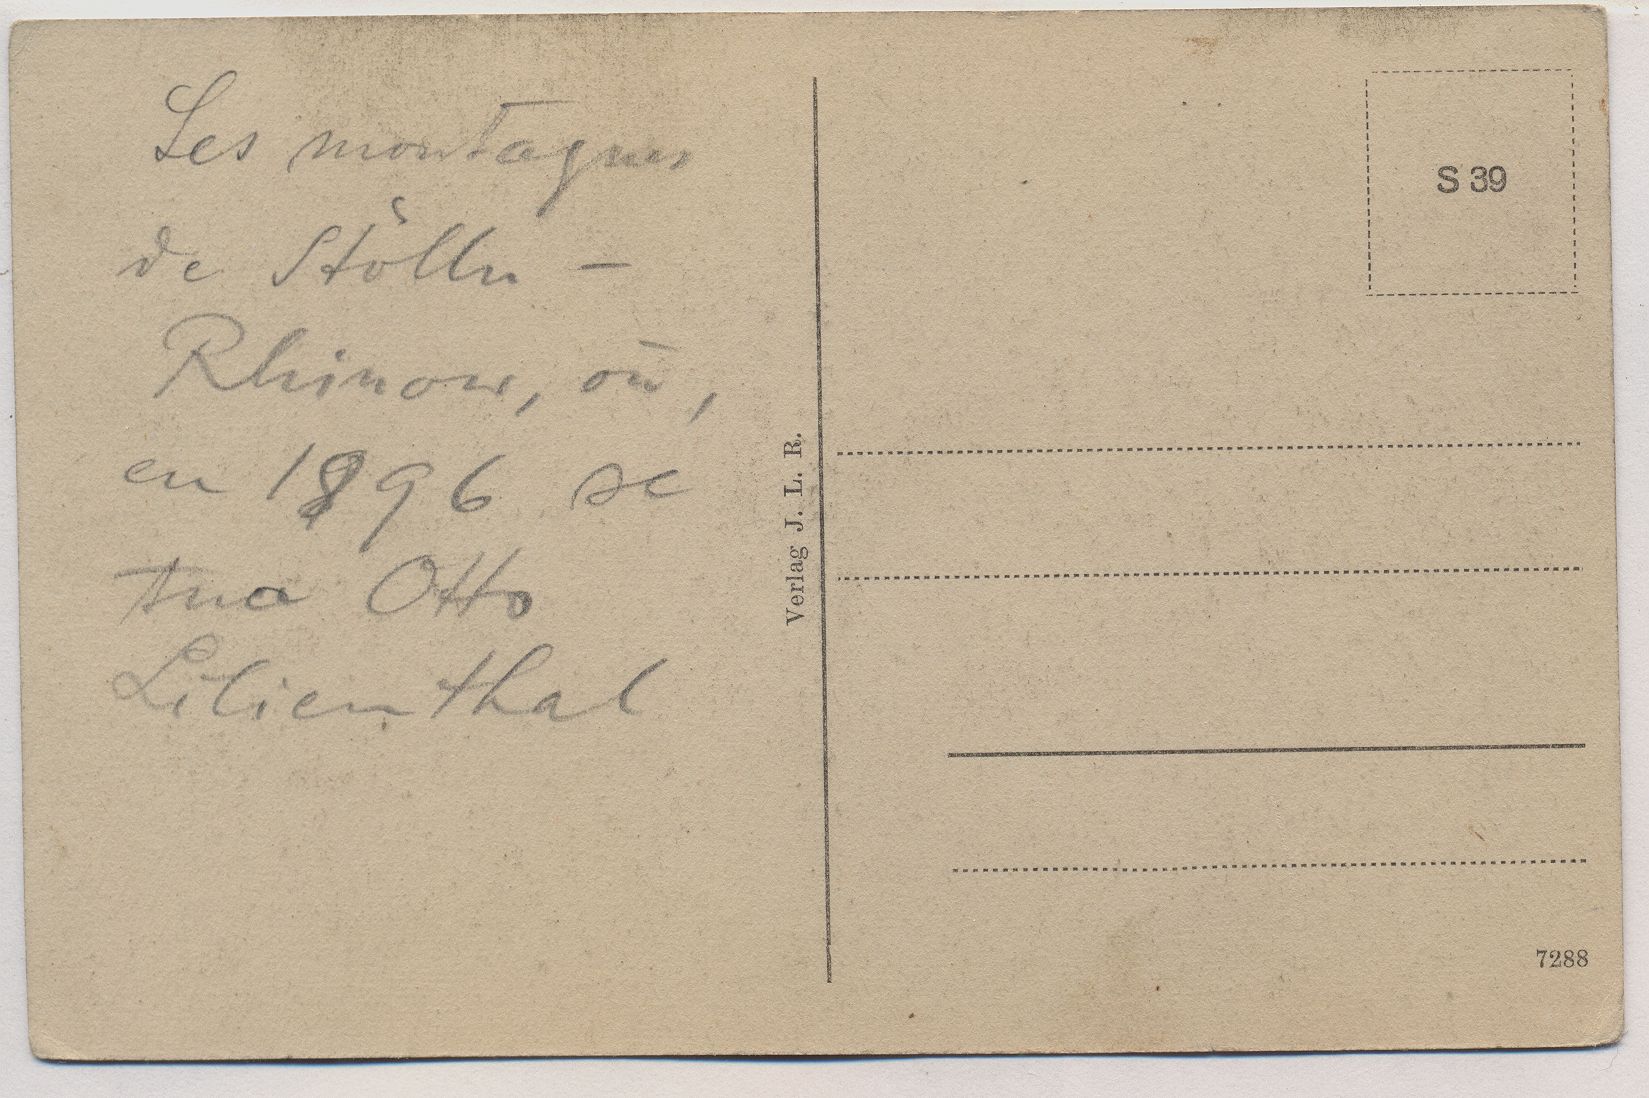 Les montagnes
de Stölln –
Rhinow, où,
en 1896 se
tua Otto
Lilienthal
Verlag J. L. R.
S 39
7288